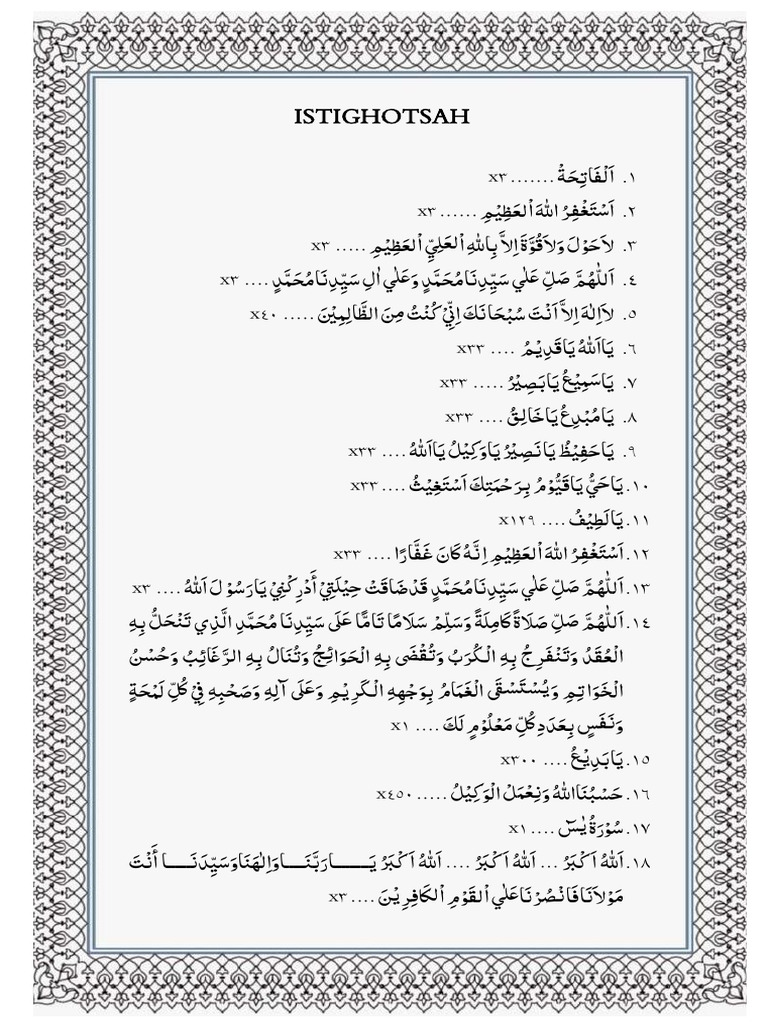 ISTIGHOTSAH
١. اَلْفَاتِحَةْ ....... x٣
٢. اَسْتَغْفِرُ اللهَ اْلعَظِيْمِ ...... x٣
٣. لاَحَوْلَ وَلاَقُوَّةَ اِلاَّ بِاللهِ اْلعَلِيِّ اْلعَظِيْمِ ..... x٣
٤. اَللّٰهُمَّ صَلِّ عَلٰي سَيِّدِنَا مُحَمَّدٍ وَعَلٰي اٰلِ سَيِّدِنَا مُحَمَّدٍ .... x٣
٥. لاَاِلٰهَ اِلاَّ اَنْتَ سُبْحَانَكَ اِنِّيْ كُنْتُ مِنَ الظَّالِمِيْنَ ..... x٤٠
٦. يَااَللهُ يَاقَدِيْمُ .... x٣٣
٧. يَاسَمِيْعُ يَابَصِيْرُ ..... x٣٣
٨. يَامُبْدِعُ يَاخَالِقُ .... x٣٣
٩. يَاحَفِيْظُ يَانَصِيْرُ يَاوَكِيْلُ يَااَللهُ .... x٣٣
١٠. يَاحَيُّ يَاقَيُّوْمُ بِرَحْمَتِكَ اَسْتَغِيْثُ .... x٣٣
١١. يَالَطِيْفُ .... x١٢٩
١٢. اَسْتَغْفِرُ اللهَ اْلعَظِيْمِ اِنَّهُ كَانَ غَفَّارًا .... x٣٣
١٣. اَللّٰهُمَّ صَلِّ عَلٰي سَيِّدِنَا مُحَمَّدٍ قَدْ ضَاقَتْ حِيْلَتِيْ أَدْرِكْنِيْ يَارَسُوْلَ اَللهُ .... x٣
١٤. اَللّٰهُمَّ صَلِّ صَلَاةً كَامِلَةً وَسَلِّمْ سَلَامًا تَامًّا عَلَى سَيِّدِنَا مُحَمَّدِ الَّذِي تَنْحَلُّ بِهِ
الْعُقَدُ وَتَنْفَرِجُ بِهِ الْكُرَبُ وَتُقْضَى بِهِ الْحَوَائِجُ وَتُنَالُ بِهِ الرَّغَائِبُ وَحُسْنُ
الْخَوَاتِمِ وَيُسْتَسْقَى الْغَمَامُ بِوَجْهِهِ الْكَرِيْمِ وَعَلَى آلِهِ وَصَحْبِهِ فِيْ كُلِّ لَمْحَةٍ
وَنَفَسٍ بِعَدَدِ كُلِّ مَعْلُوْمٍ لَكَ .... x١
١٥. يَابَدِيْعُ .... x٣٠٠
١٦. حَسْبُنَااللهُ وَنِعْمَلْ الْوَكِيْلُ ..... x٤٥٠
١٧. سُوْرَةُ يٰسٓ .... x١
١٨. اَللهُ اَكْبَرُ ... اَللهُ اَكْبَرُ .... اَللهُ اَكْبَرُ يَـــــارَبَّنَـــاوَاِلٰهَنَاوَسَيِّدَنَـــا أَنْتَ
مَوْلاَنَا فَانْصُرْنَا عَلٰي اْلقَوْمِ اْلكَافِرِيْنَ .... x٣